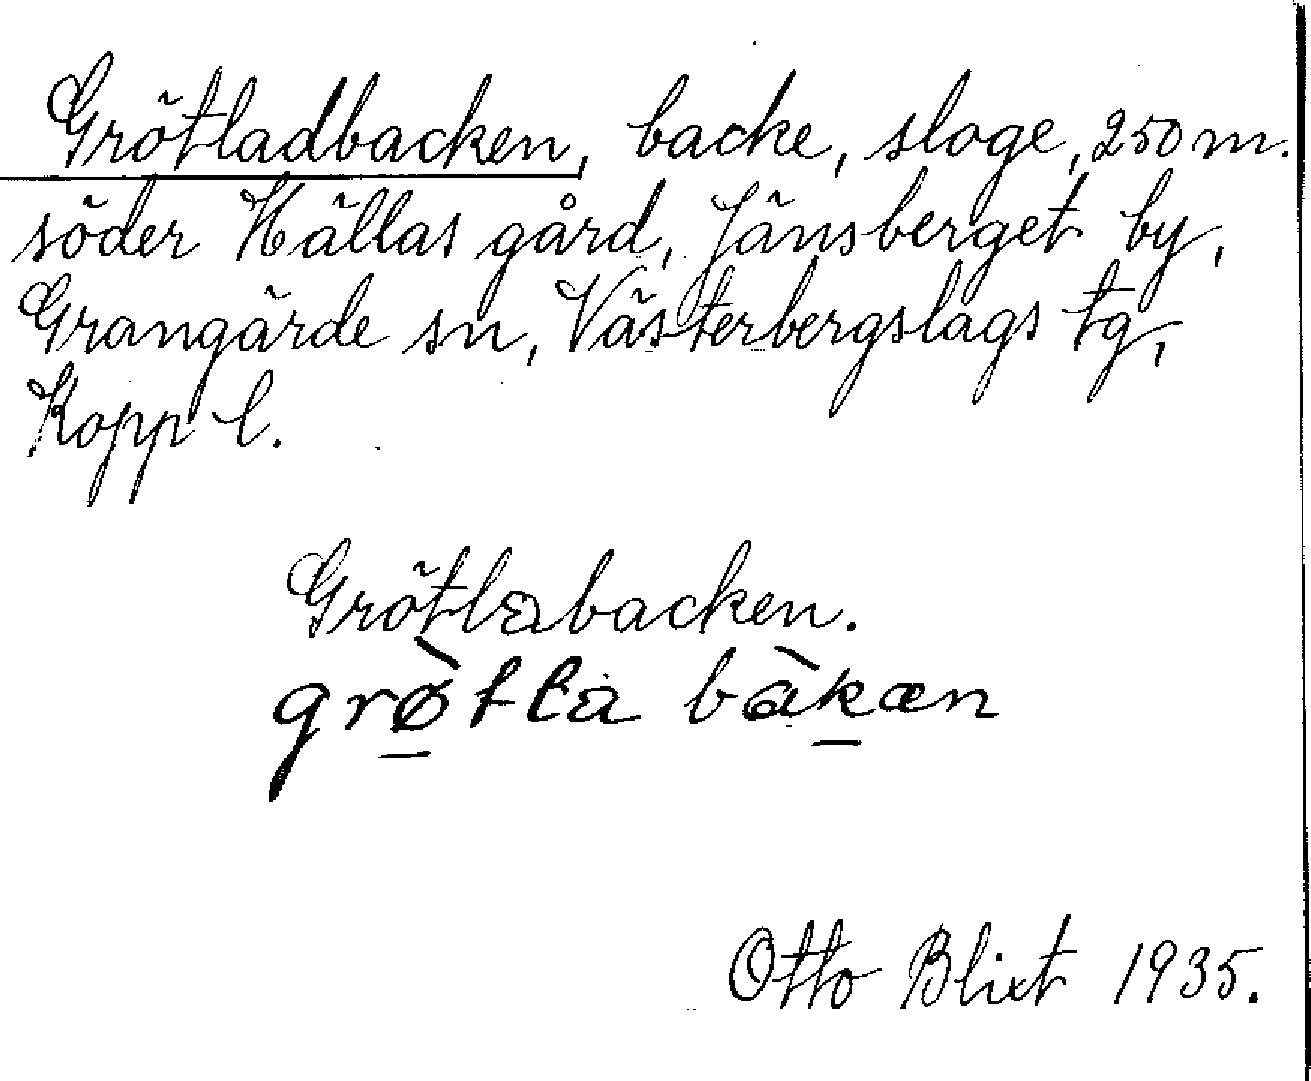 Grötladbacken, backe, sloge, 250 m.
söder Hällas gård, Jänsberget by,
Grangärde sn, Västerbergslags tg,
Kopp l.
Grötlabacken.
grø̀tla bàkæn
Otto Blixt 1935.